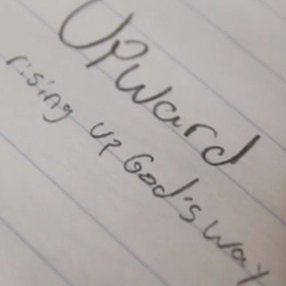 UPWard
rising up God's way